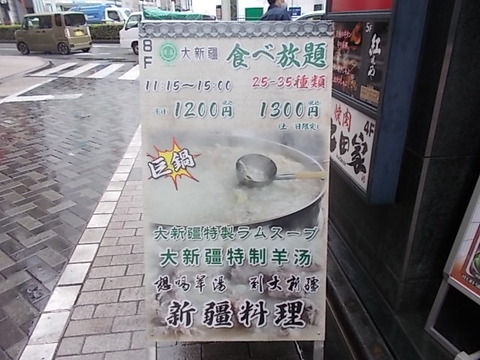 8F
大新疆
食べ放題
11:15～15:00
25-35種類
平日 1200円 税込
1300円 税込
(土・日限定)
巨鍋
大新疆特製ラムスープ
大新疆特制羊汤
想喝羊湯 到大新疆
新疆料理
焼肉
4F